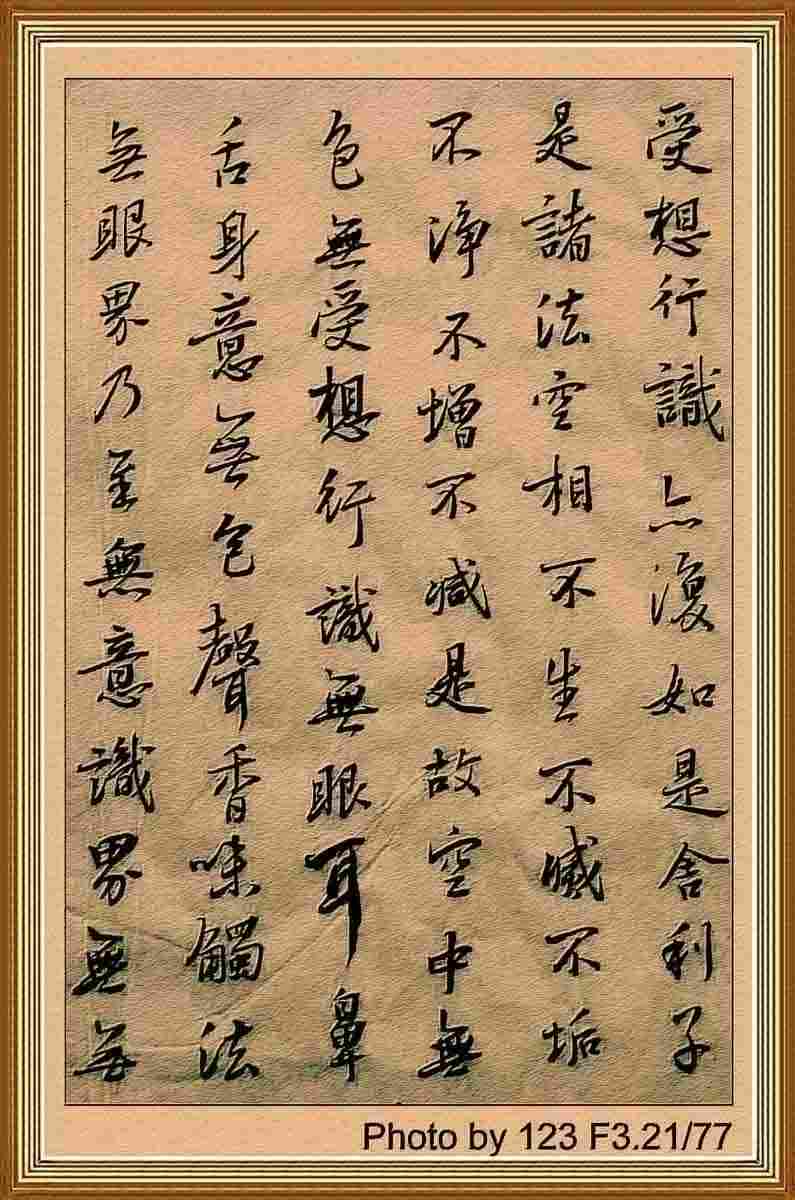 受想行識亦復如是舍利子
是諸法空相不生不滅不垢
不淨不增不減是故空中無
色無受想行識無眼耳鼻
舌身意無色聲香味觸法
無眼界乃至無意識界無無
Photo by 123 F3.21/77